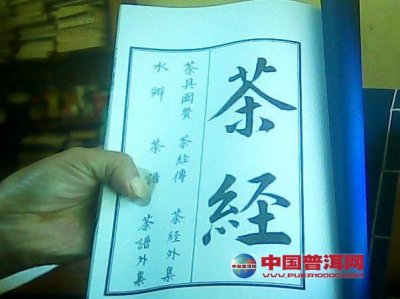 茶經
茶具圖賛 茶經傳 茶経外集
水辨 茶譜 茶譜外集
中国普洱网
WWW.PUER10000.COM